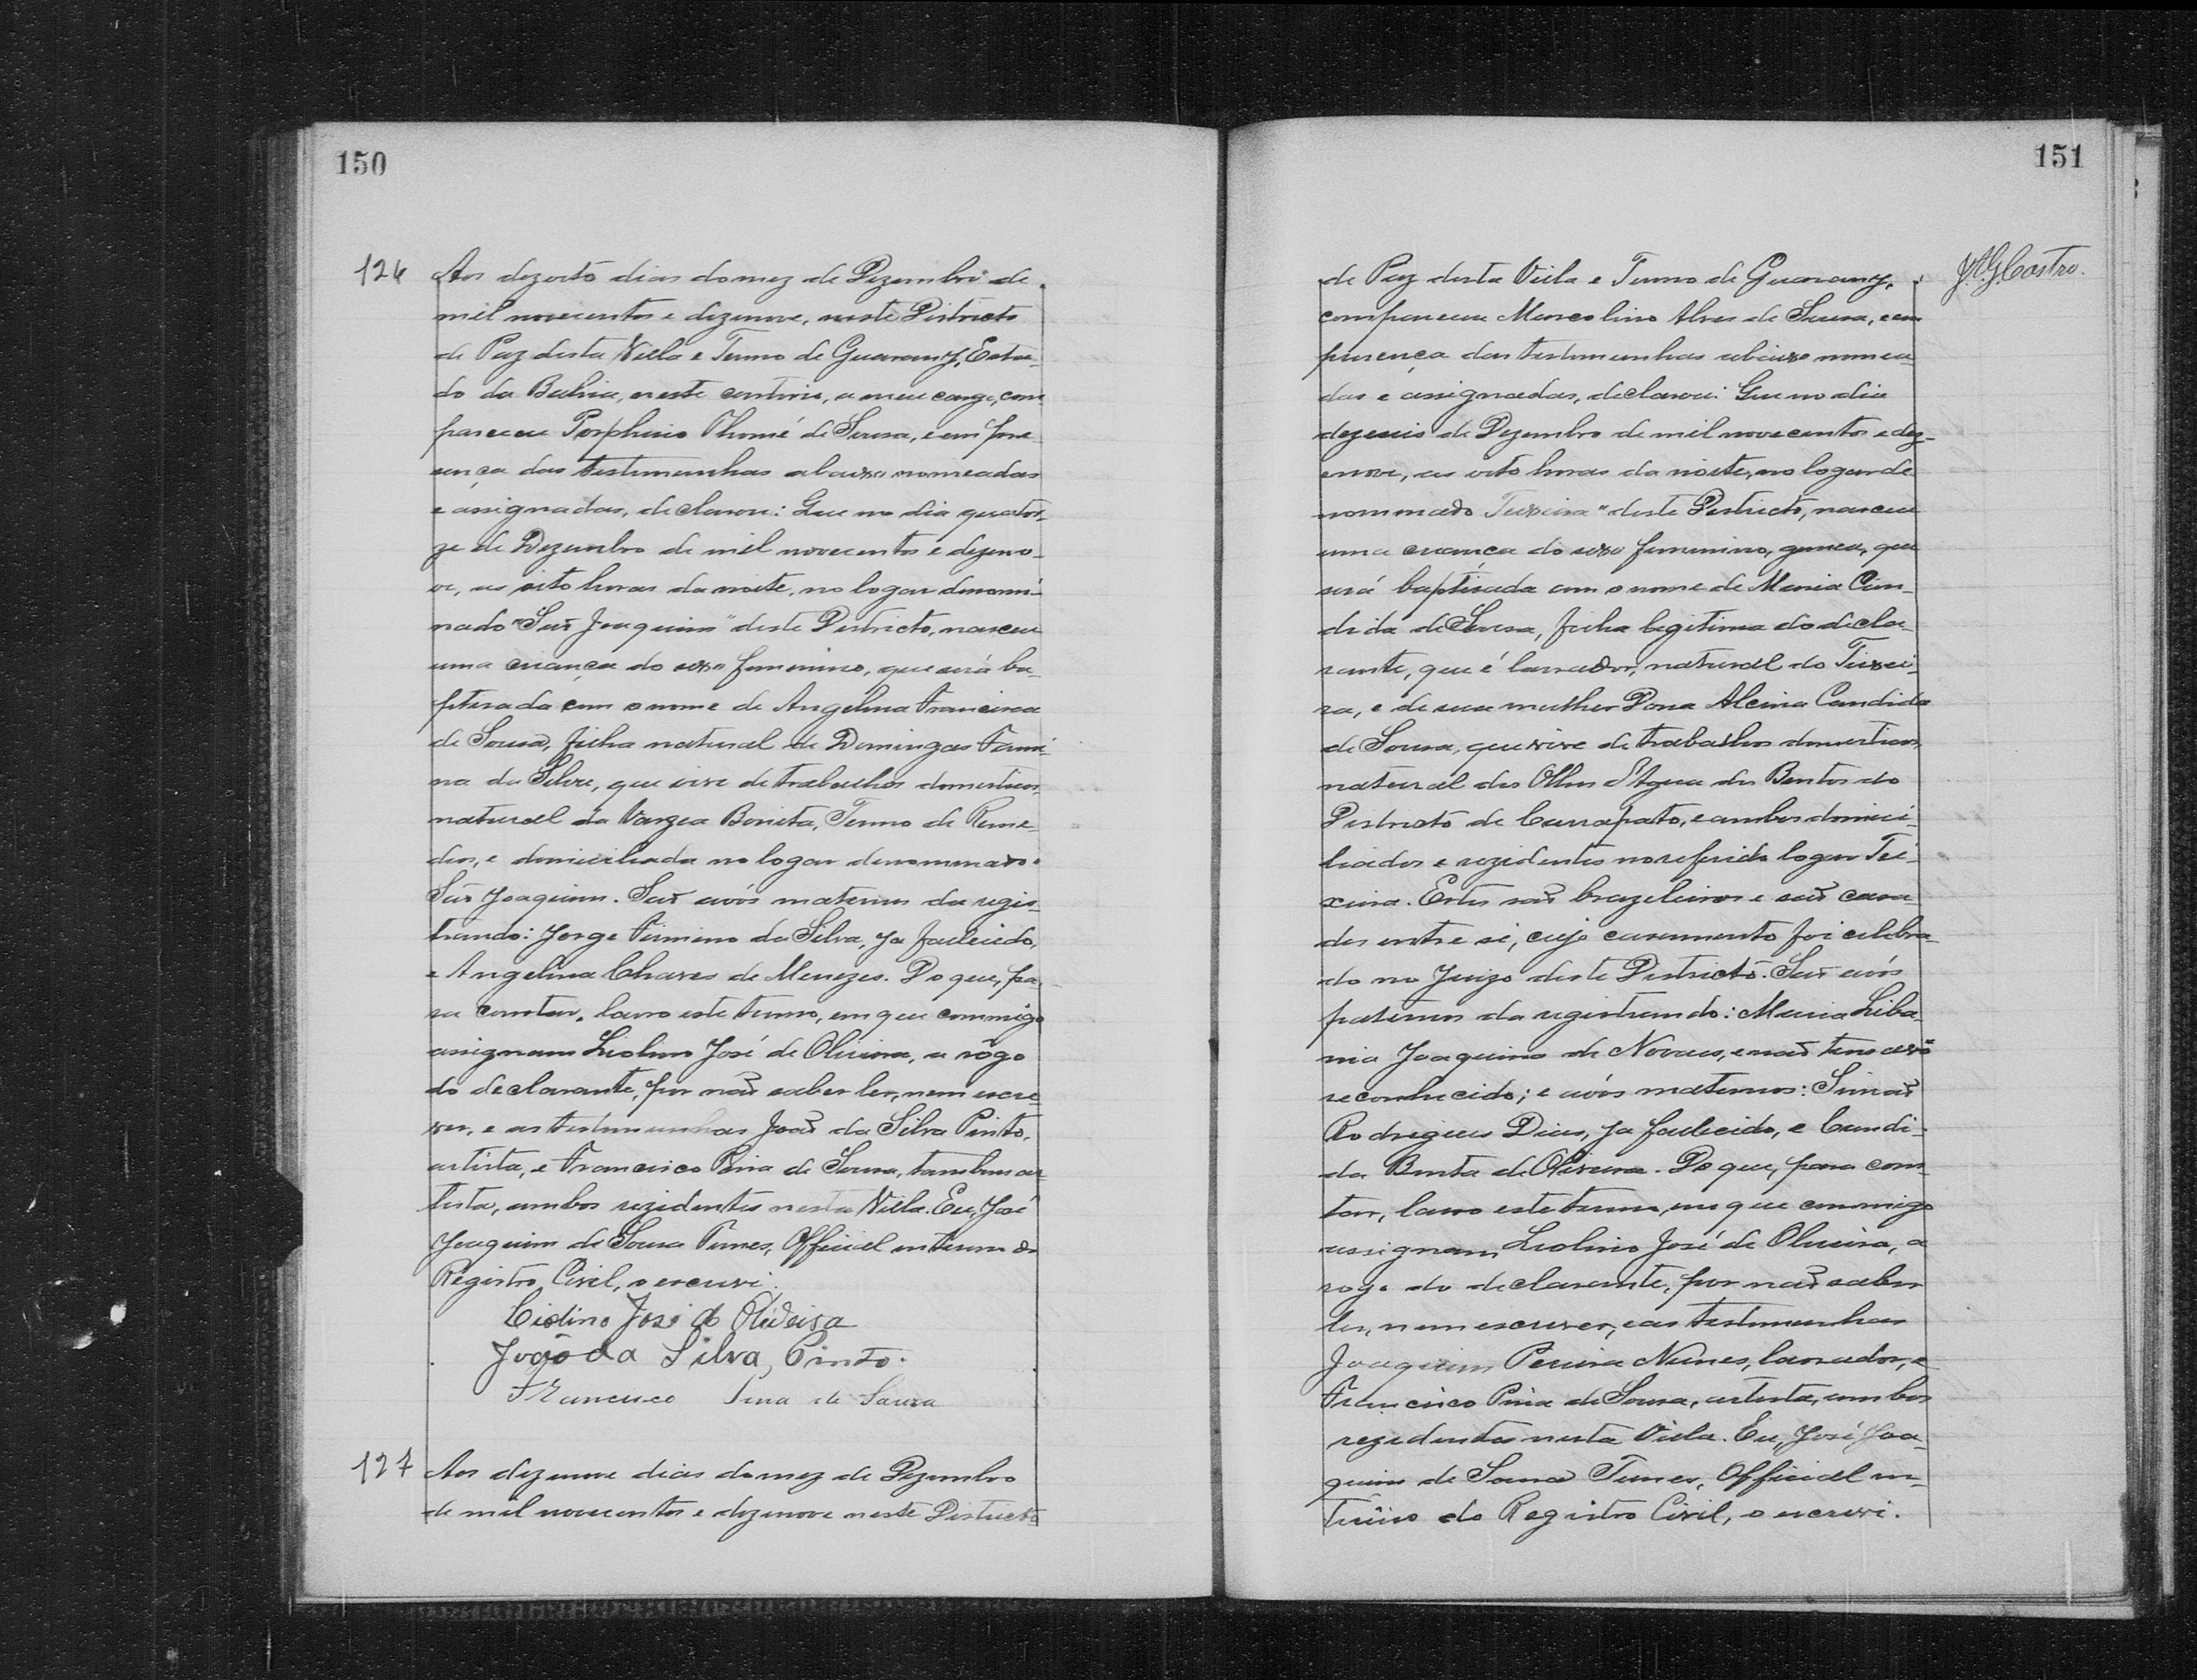 150
126 Aos dezoito dias do mez de Dezembro de
mil novecentos e dezenove, neste Districto
de Paz desta Villa e Termo de Guarany, Esta-
do da Bahia, neste cartorio, a meu cargo, com-
pareceu Porphirio Thomé de Sousa, e em pre-
sença das testemunhas abaixo nomeadas
e assignadas, declarou: Que no dia quator-
ze de Dezembro de mil novecentos e dezeno-
ve, as oito horas da noite, no logar denomi-
nado "São Joaquim" deste Districto, nasceu
uma criança do sexo feminino, que será ba-
ptisada com o nome de Angelina Francisca
de Sousa, filha natural de Domingas Firmi-
na da Silva, que vive de trabalhos domesticos,
natural da Varzea Bonita, Termo de Reme-
dios, e domiciliada no logar denominado
São Joaquim. São avós maternos da regis-
trando: Jorge Firmino da Silva, ja fallecido,
e Angelina Chaves de Menezes. Do que, pa-
ra constar, lavro este termo, em que commigo
assignam Liolino José de Oliveira, a rôgo
do declarante, por não saber ler, nem escre-
ver, e as testemunhas João da Silva Pinto,
artista, e Francisco Pina de Sousa, tambem ar-
tista, ambos rezidentes nesta Villa. Eu, José
Joaquim de Sousa Tunes, Official interino do
Registro Civil, o escrevi.
Liolino José de Oliveira
João da Silva Pinto.
Francisco Pina de Sousa
127 Aos dezenove dias do mez de Dezembro
de mil novecentos e dezenove neste Districto
151
J.A.G. Castro.
de Paz desta Villa e Termo de Guarany,
compareceu Marcolino Alves de Sousa, e em
presença das testemunhas abaixo nomea-
das e assignadas, declarou: Que no dia
dezeseis de Dezembro de mil novecentos e dez-
enove, as oito horas da noite, no logar de-
nominado Teixeira" deste Districto, nasceu
uma criança do sexo feminino, gemea, que
será baptisada com o nome de Maria Can-
dida de Sousa, filha legitima do decla-
rante, que é lavrador, natural do Teixei-
ra, e de sua mulher Dona Alcina Candida
de Sousa, que vive de trabalhos domesticos,
natural dos Olhos d'Agua dos Bentos do
Districto de Carrapato, e ambos domici-
liados e rezidentes no referido logar Tei-
xeira. Estes são brazileiros e são casa-
dos entre si, cujo casamento foi celebra-
do no Juizo deste Districto. São avós
paternos da registrando: Maria Liba-
nia Joaquina de Novaes, e não tem avô
reconhecido; e avós maternos: Simão
Rodrigues Dias, ja fallecido, e Candi-
da Benta de Oliveira. Do que, para cons-
tar, lavro este termo, em que commigo
assignam Liolino José de Oliveira, a
rogo do declarante, por não saber
ler, nem escrever, e as testemunhas
Joaquim Pereira Nunes, lavrador, e
Francisco Pina de Sousa, artista, ambos
rezidentes nesta Villa. Eu, José Joa-
quim de Sousa Tunes, Official in-
terino do Registro Civil, o escrevi.